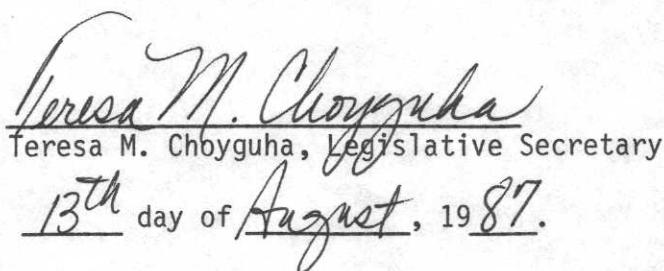 Teresa M. Choyguha
Teresa M. Choyguha, Legislative Secretary
13th day of August, 1987.